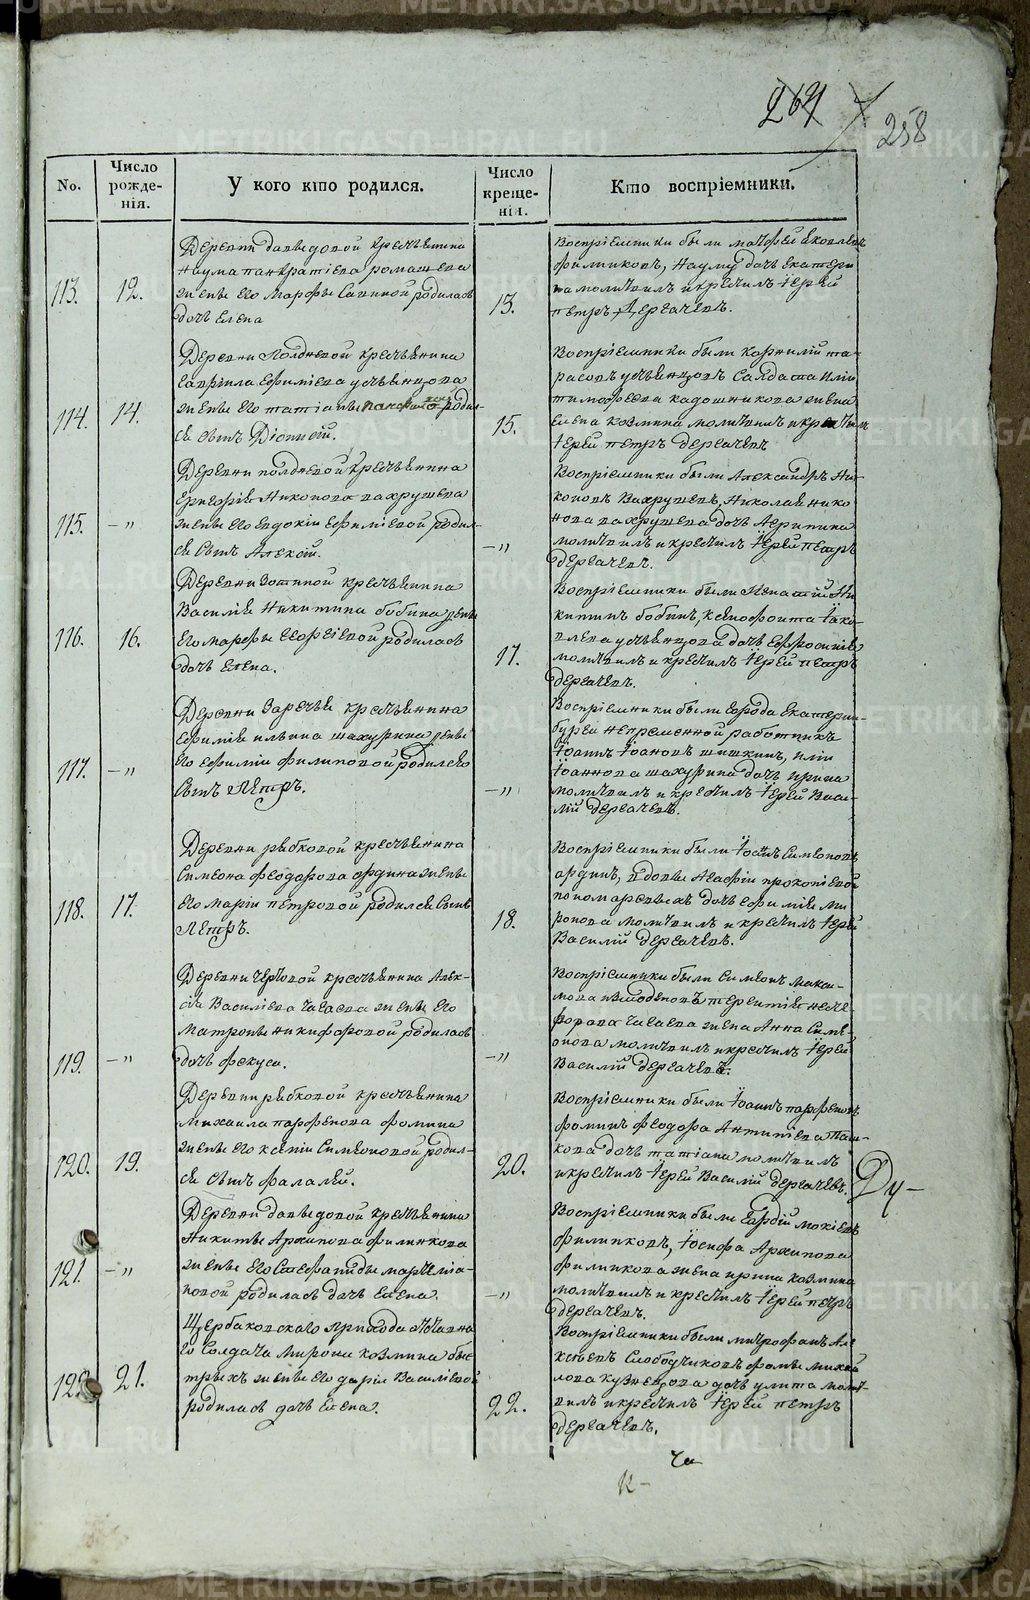 264
258
No.
Число рожде-нія.
У кого кто родился.
Число креще-нія.
Кто воспріемники.
113.
12.
Деревни давыдовой крестьянина
наума панкратіева ромашева
жены его марфы савиной родилась
дочь елена
13.
Воспріемники были матфей яковлевъ
филинковъ, наума дочь екатери
на молитвилъ и крестилъ іерей
петръ дергачевъ.
114.
14.
Деревни Полдневой крестьянина
гавріила ефиміева устьянцова
жены его татіаны родил-
ся сынъ Діонисій.
15.
Воспріемники были корнилій та-
расовъ устьянцовъ салдата иліи
тимофеева кадошникова жена
елена козмина молитвилъ и крестилъ
іерей петръ дергачевъ
115.
— "
Деревни полдневой крестьянина
григорія никонова вахрушева
жены его евдокіи ефиміевой родил-
ся сынъ Алексій.
— "
Воспріемники были Александръ Ни-
коновъ Вахрушевъ, Николая нико
нова вахрушева дочь Агрипина
молитвилъ и крестилъ іерей петръ
дергачевъ.
116.
16.
Деревни зотиной крестьянина
Василія Никитина бобина жены
его марфы георгіевой родилась
дочь елена.
17.
Воспріемники были Игнатій Ни
китинъ бобинъ, ксенофонта іако
влева устьянцова дочь ефросинія
молитвилъ и крестилъ іерей петръ
дергачевъ.
117.
— "
Деревни Заречья крестьянина
ефимія ильина шахурина жены
его ефиміи филиповой родился
сынъ Петръ.
— "
Воспріемники были города екатерин-
бурга непременной работникъ
іоаннъ іоановъ шишкинъ, иліи
іоаннова шахурина дочь ирина
молитвилъ и крестилъ іерей Васи-
лій дергачевъ.
118.
17.
Деревни рыбковой крестьянина
симеона феодорова ардина жены
его маріи петровой родился сынъ
Петръ.
18.
Воспріемники были іоаннъ симеоновъ
ардинъ, вдовы Агафіи прокопіевой
пономаревыхъ дочь ефимія ми
ронова молитвилъ и крестилъ іерей
Василій дергачевъ.
119.
— "
Деревни Чертовой крестьянина Алек-
сія Василіева Чагаева жены его
матроны никифоровой родилась
дочь фекуса.
— "
Воспріемники были симеонъ макси-
терентія ники-
форова чагаева жена Анна симе-
онова молитвилъ и крестилъ іерей
Василій дергачевъ.
120.
19.
Деревни рыбковой крестьянина
михаила парфенова фомина
жены его ксеніи симеоновой родил-
ся сынъ фалалей.
20.
Воспріемники были іоаннъ парфеновъ
фоминъ феодора Антипіева паш-
кова дочь татіана молитвилъ
и крестилъ іерей Василій дергачевъ.
Ду-
121.
— "
Деревни давыдовой крестьянина
никиты Архипова филинкова
жены его стефаниды маркелла-
новой родилась дочь елена.
— "
Воспріемники были гордій мокіевъ
филинковъ, іосифа Архипова
филинкова жена ирина козмина
молитвилъ и крестилъ іерей петръ
дергачевъ.
122.
21.
Щербаковскаго прихода отставна
го солдата мирона козмина быс
трыхъ жены его даріи Василіевой
родилась дочь елена.
22.
Воспріемники были митрофанъ Але
ксіевъ слободчиковъ фомы михай
лова кузнецова дочь улита молит-
вилъ и крестилъ іерей петръ
дергачевъ.
METRIKI.GASO-URAL.RU